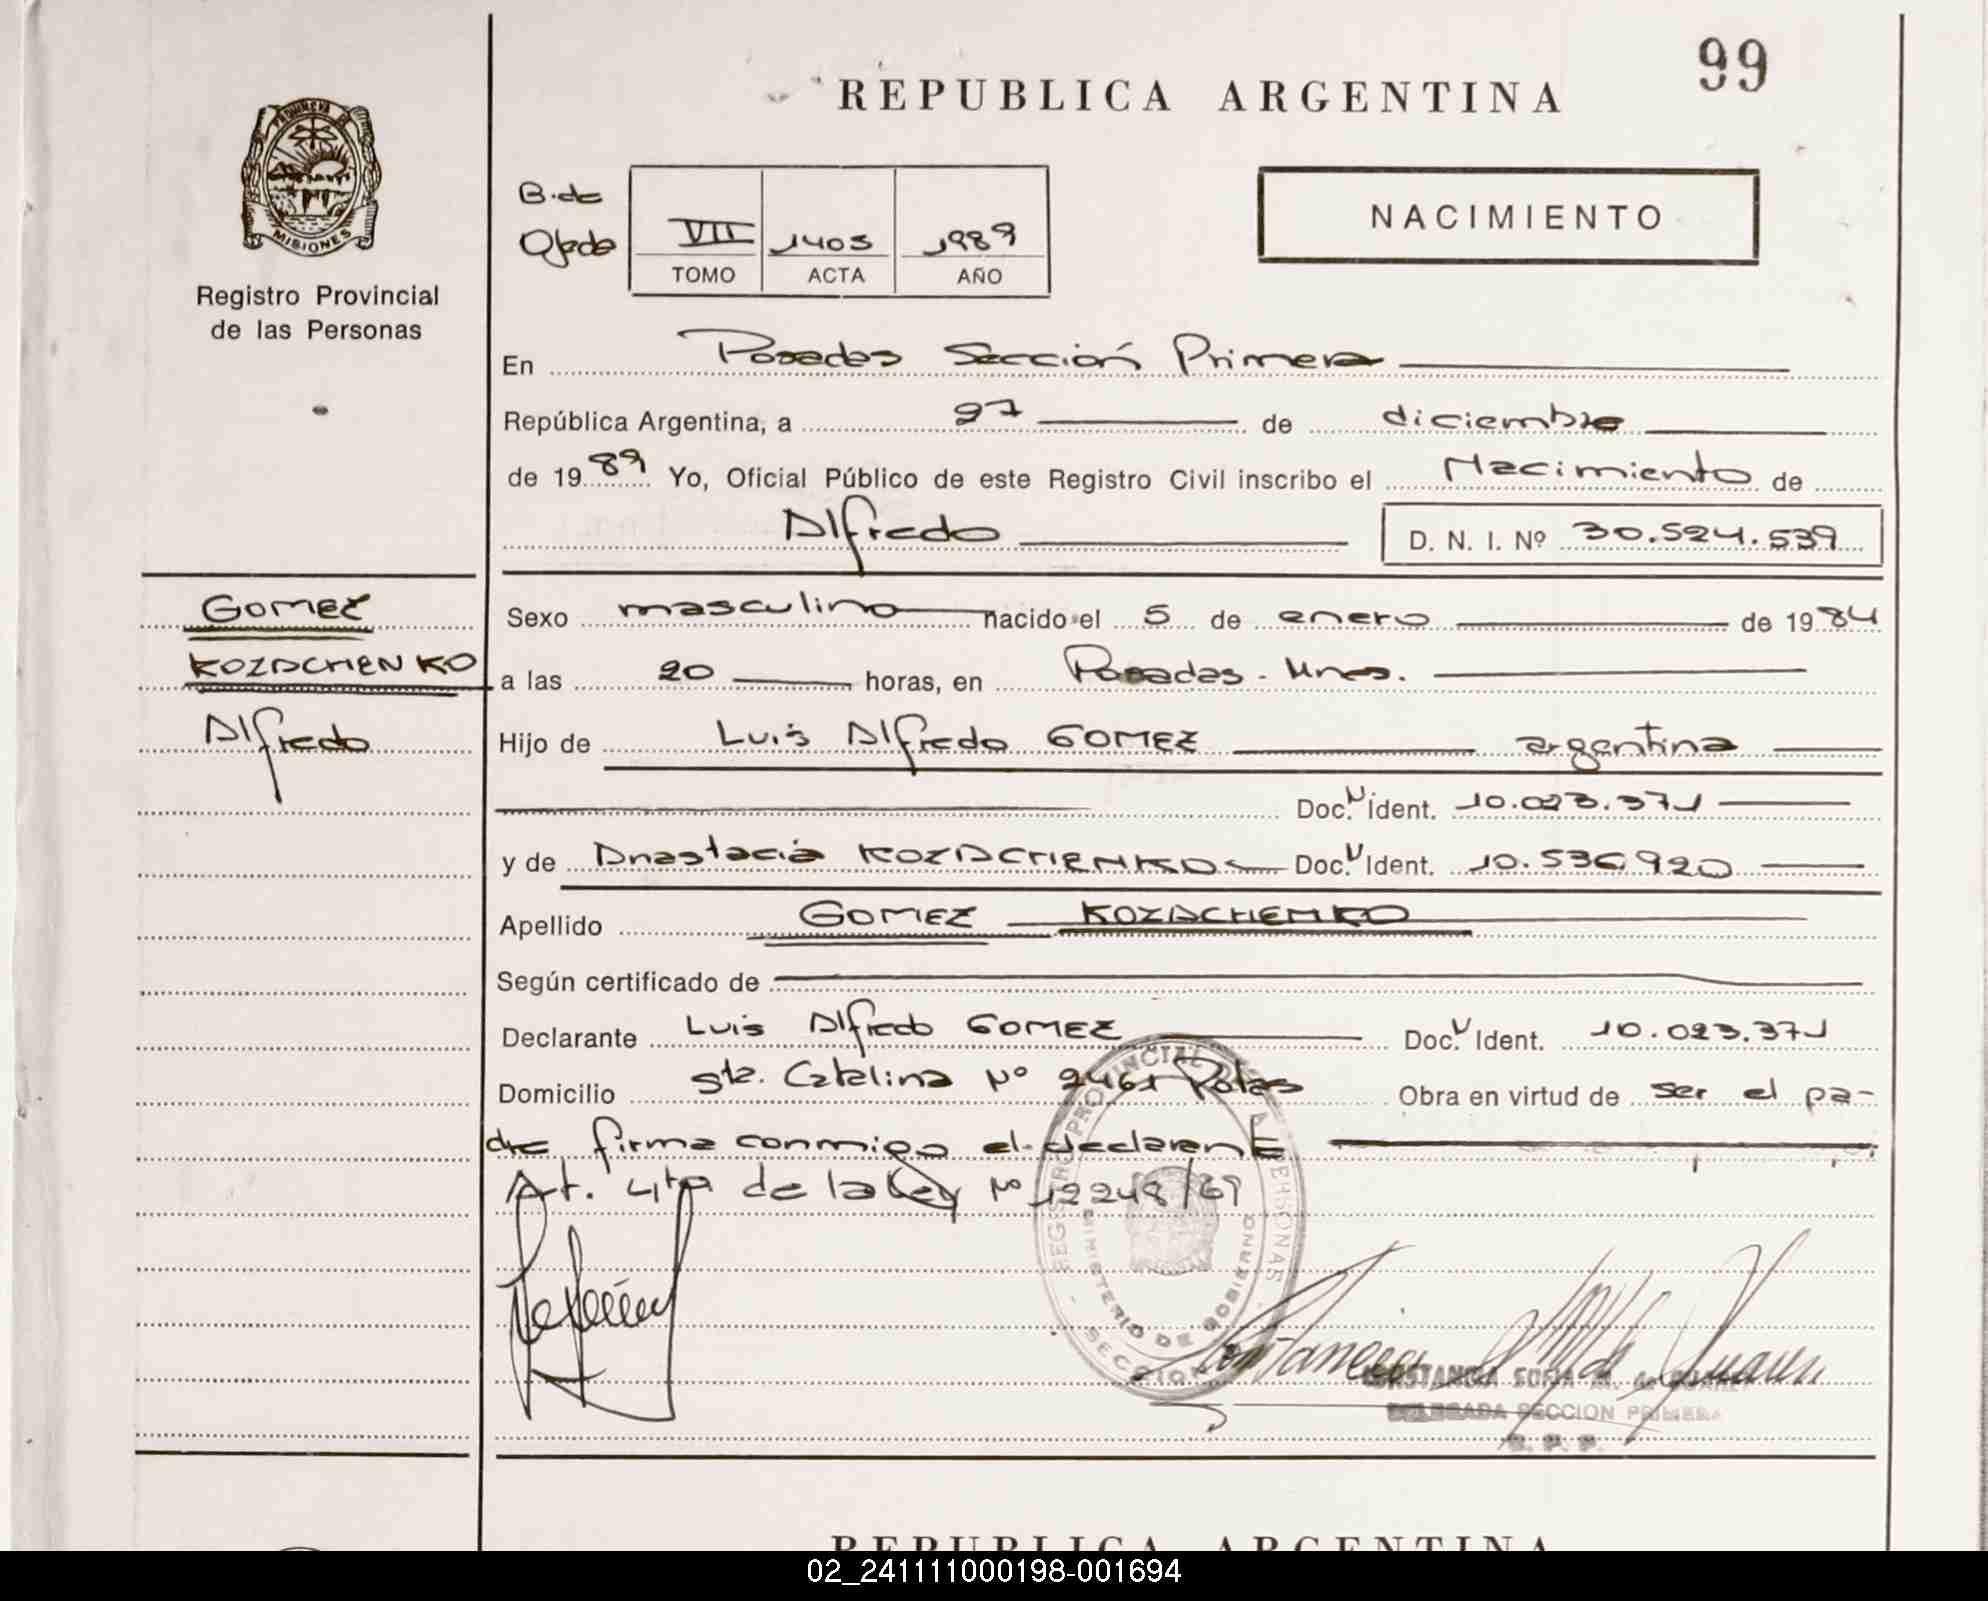 99
REPUBLICA ARGENTINA
PROVINCIA DE
MISIONES
Registro Provincial
de las Personas
B. de
Ojeda
VII 1405 1989
TOMO ACTA AÑO
NACIMIENTO
En Posadas Sección Primera
República Argentina, a 27 de diciembre
de 1989 Yo, Oficial Público de este Registro Civil inscribo el Nacimiento de
Alfredo D. N. I. Nº 30.524.539
GOMEZ
KOZACHENKO
Alfredo
Sexo masculino nacido el 5 de enero de 1984
a las 20 horas, en Posadas - Mnes.
Hijo de Luis Alfredo GOMEZ argentina
Doc. Ident. 10.023.371
y de Anastacia KOZACHENKO Doc. Ident. 10.536.920
Apellido GOMEZ KOZACHENKO
Según certificado de
Declarante Luis Alfredo GOMEZ Doc. Ident. 10.023.371
Domicilio Sta. Catalina Nº 2461 Pdas Obra en virtud de ser el pa-
dre firma conmigo el declarante
Art. 4to de la Ley Nº 12248/69
REGISTRO PROVINCIAL DE LAS PERSONAS
MINISTERIO DE GOBIERNO
SECCION
CONSTANCIA SOFIA M. de
DELEGADA SECCION PRIMERA
R. P. P.
REPUBLICA ARGENTINA
02_241111000198-001694